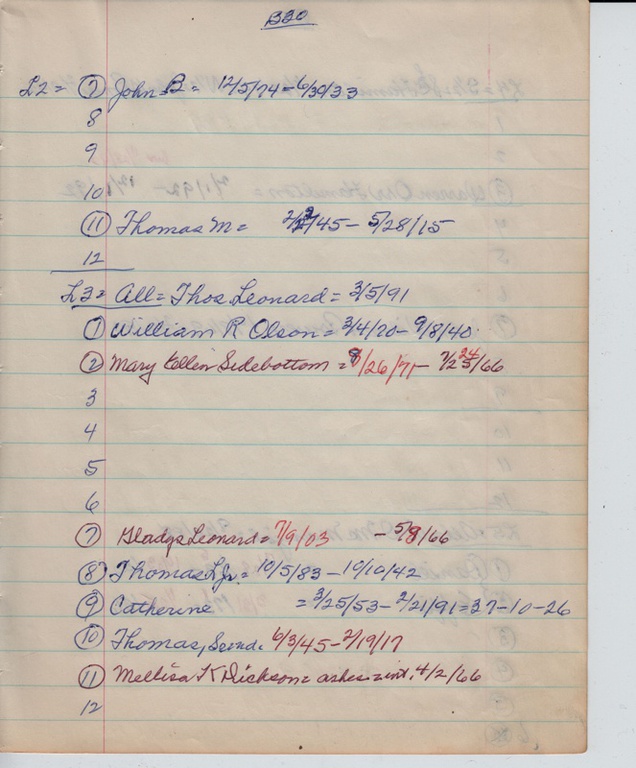 B20
L2 = (7) John B = 12/5/74 - 6/30/33
8
9
10
(11) Thomas M = 2/22/45 - 5/28/15
12
L3 = All = Thos Leonard = 3/5/91
(1) William R Olson = 3/4/70 - 9/8/40
(2) Mary Ellen Sidebottom = 8/26/71 - 7/24/66
3
4
5
6
(7) Gladys Leonard = 7/9/03 - 5/8/66
(8) Thomas L Jr. = 10/5/83 - 10/10/42
(9) Catherine = 3/25/53 - 2/21/91 = 37-10-26
(10) Thomas, Sr 6/3/45 - 2/19/17
(11) Mellisa K Dickson = ashes = int. 4/2/66
12